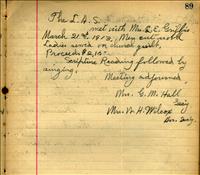 89
The L.A.S.
met with Mrs. E. Griffis
March 21st 1912. Men cut wood
Ladies sewed on church quilt.
Proceeds $2.15
Scripture Reading followed by
singing.
Meeting adjourned
Mrs. G. M. Hall
Secy
Mrs. W. H. Wilcox